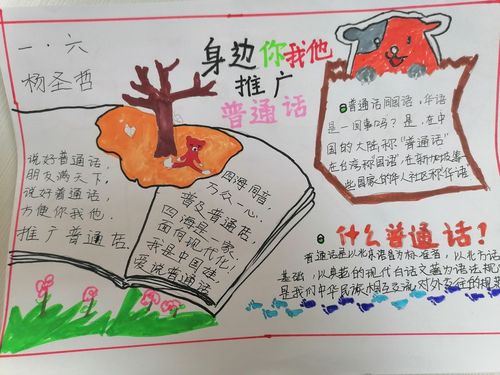 一·六
杨圣哲
身边你我他
推广
普通话
普通话同国语,华语
是一回事吗?是,在中
国的大陆称“普通话”
在台湾称国语,在新加坡等
些国家的华人社区称华语
说好普通话,
朋友满天下,
说好普通话,
方便你我他,
推广普通话.
四海同音
万众一心,
普及普通话,
四海是一家,
面向现代化,
我是中国娃,
爱说普通话
什么普通话!
普通话是以北京语音为标准音,以北方话
基础,以典范的现代白话文著为语法规
是我们中华民族相互交流,对外交往的规范